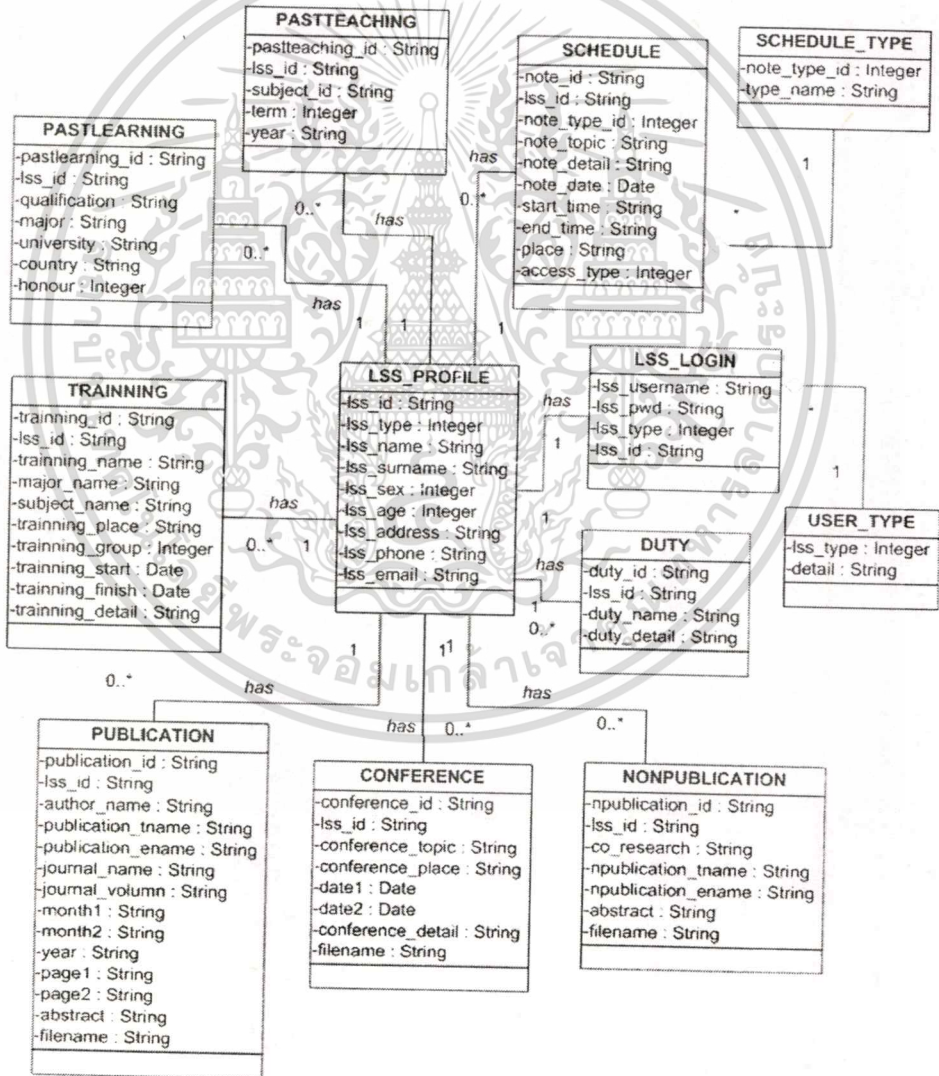 PASTTEACHING
-pastteaching_id : String
-lss_id : String
-subject_id : String
-term : Integer
-year : String
SCHEDULE
-note_id : String
-lss_id : String
-note_type_id : Integer
-note_topic : String
-note_detail : String
-note_date : Date
-start_time : String
-end_time : String
-place : String
-access_type : Integer
SCHEDULE_TYPE
-note_type_id : Integer
-type_name : String
PASTLEARNING
-pastlearning_id : String
-lss_id : String
-qualification : String
-major : String
-university : String
-country : String
-honour : Integer
has
0..*
1
0..*
has
*
0..*
has
1
1
1
TRAINNING
-trainning_id : String
-lss_id : String
-trainning_name : String
-major_name : String
-subject_name : String
-trainning_place : String
-trainning_group : Integer
-trainning_start : Date
-trainning_finish : Date
-trainning_detail : String
LSS_PROFILE
-lss_id : String
-lss_type : Integer
-lss_name : String
-lss_surname : String
-lss_sex : Integer
-lss_age : Integer
-lss_address : String
-lss_phone : String
-lss_email : String
LSS_LOGIN
-lss_username : String
-lss_pwd : String
-lss_type : Integer
-lss_id : String
has
1
*
1
has
0..*
1
1
USER_TYPE
-lss_type : Integer
-detail : String
DUTY
-duty_id : String
-lss_id : String
-duty_name : String
-duty_detail : String
has
1
0..*
พระจอมเกล้าเจ้า
1
11
0..*
has
has
0..*
has
0..*
PUBLICATION
-publication_id : String
-lss_id : String
-author_name : String
-publication_tname : String
-publication_ename : String
-journal_name : String
-journal_volumn : String
-month1 : String
-month2 : String
-year : String
-page1 : String
-page2 : String
-abstract : String
-filename : String
CONFERENCE
-conference_id : String
-lss_id : String
-conference_topic : String
-conference_place : String
-date1 : Date
-date2 : Date
-conference_detail : String
-filename : String
NONPUBLICATION
-npublication_id : String
-lss_id : String
-co_research : String
-npublication_tname : String
-npublication_ename : String
-abstract : String
-filename : String